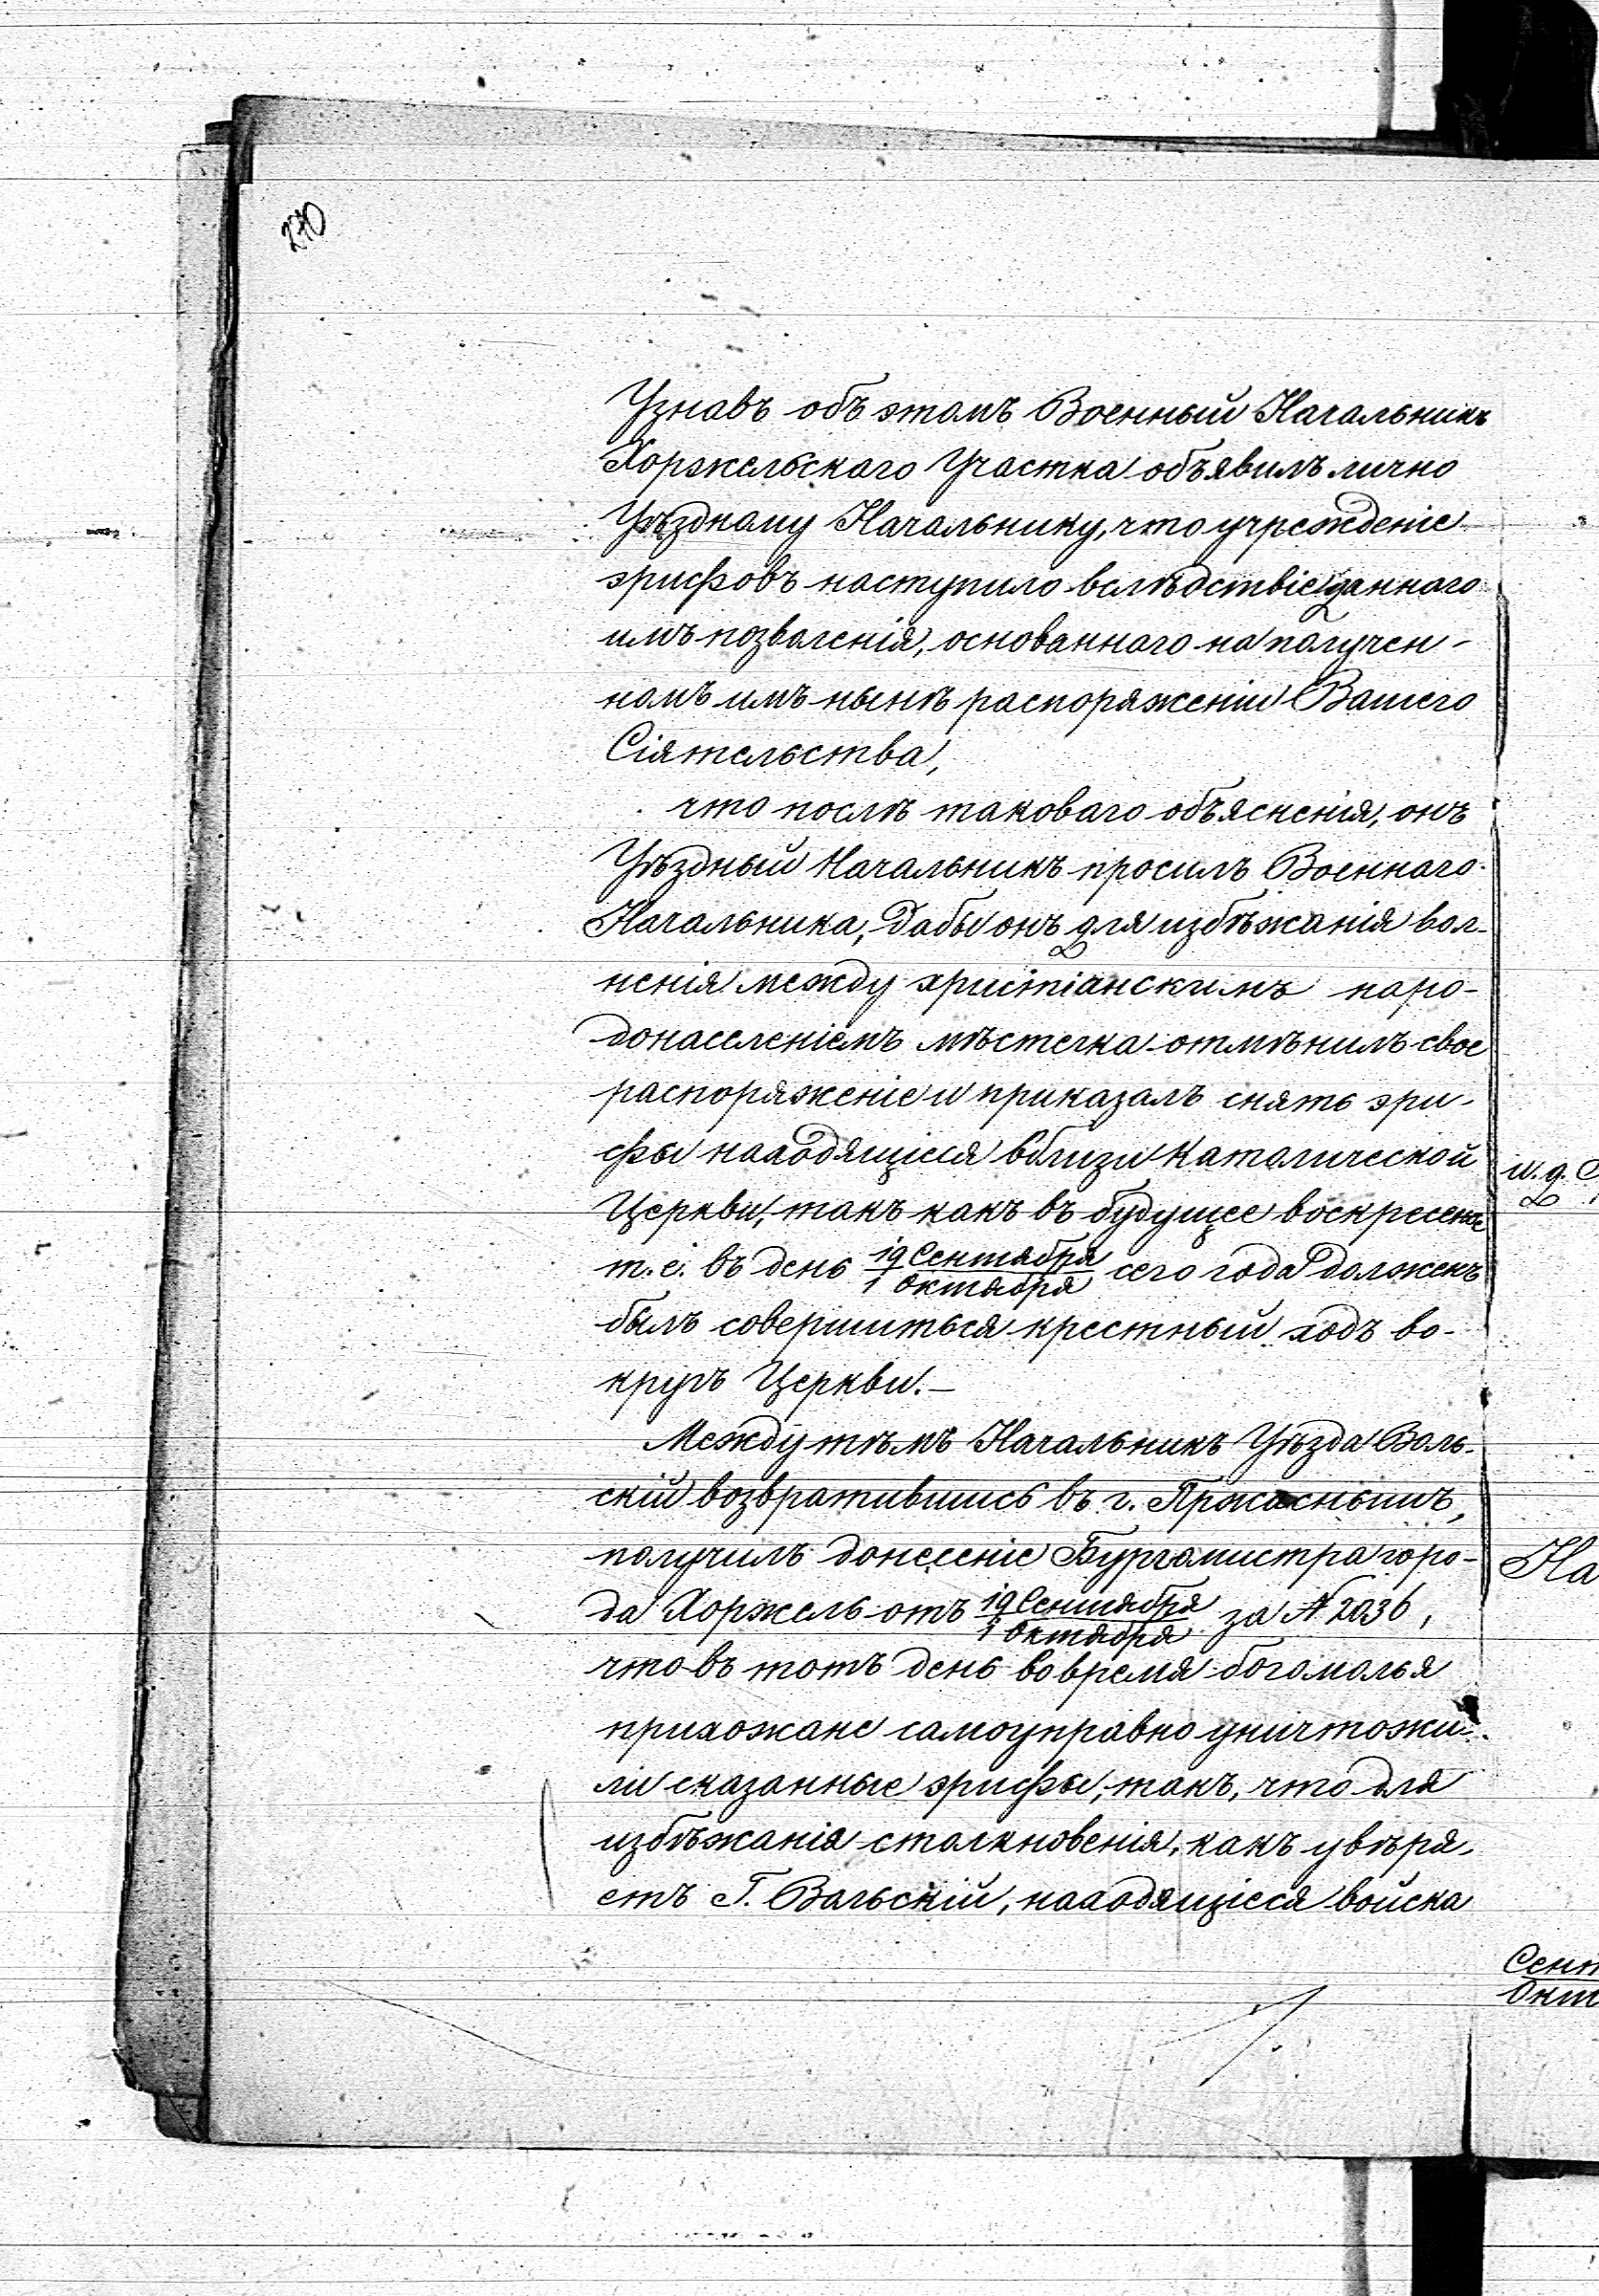 270
Узнавъ объ этомъ Военный Начальникъ
Хоржельскаго Участка объявилъ лично
Уѣздному Начальнику, что учрежденіе
эрифовъ наступило вслѣдствіе даннаго
имъ позволенія, основаннаго на получен-
номъ имъ нынѣ распоряженіи Вашего
Сіятельства,
что послѣ таковаго объясненія, онъ
Уѣздный Начальникъ просилъ Военнаго
Начальника, дабы онъ для избѣжанія вол-
ненія между христіанскимъ наро-
донаселеніемъ мѣстечка отмѣнилъ свое
распоряженіе и приказалъ снять эри-
фы находящіеся вблизи Католической
Церкви, такъ какъ въ будущее воскресенье
т. е. въ день 19 Сентября/1 Октября сего года долженъ
былъ совершиться крестный ходъ во-
кругъ Церкви.—
Между тѣмъ Начальникъ Уѣзда Воль-
скій возвратившись въ г. Пржаснышъ,
получилъ донесеніе Бургомистра горо-
да Хоржель отъ 19 Сентября/1 Октября за № 2036,
что въ тотъ день во время богомолья
прихожане самоуправно уничтожи-
ли сказанные эрифы, такъ, что для
избѣжанія столкновенія, какъ увѣря-
етъ Г. Вольскій, находящіеся войска
и. д. С
На
Сент
Окт